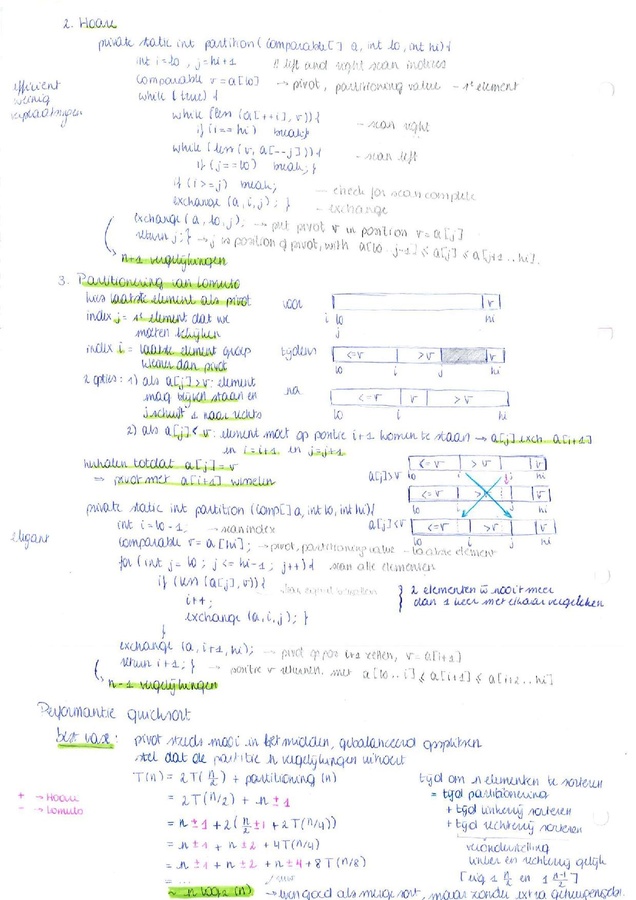 2. Hoare
private static int partition (Comparable[] a, int lo, int hi) {
int i = lo, j = hi+1 // left and right scan indices
Comparable v = a[lo] → pivot, partitioning value - 1e element
efficiënt
weinig
verplaatsingen
while (true) {
while (less (a[++i], v)) {
if (i == hi) break; } - scan right
while (less (v, a[--j])) {
if (j == lo) break; } - scan left
if (i >= j) break; - check for scan complete
exchange (a, i, j); } - exchange
exchange (a, lo, j); → put pivot v in position v = a[j]
return j; } → j is position of pivot, with a[lo..j-1] ≤ a[j] ≤ a[j+1..hi].
n+1 vergelijkingen
3. Partitionering van Lomuto
kies laatste element als pivot
index j = 1e element dat we
moeten bekijken
index i = laatste element groep
kleiner dan pivot
2 opties: 1) als a[j] > v: element
mag blijven staan en
j schuift 1 naar rechts
voor
v
i lo hi
j
tijdens
<= v > v v
lo i j hi
na
<= v v > v
lo i hi
2) als a[j] < v: element moet op positie i+1 komen te staan → a[j] exch. a[i+1]
en i = i+1 en j = j+1
herhalen totdat a[j] = v
⇒ pivot met a[i+1] wisselen
a[j] > v
<= v > v v
lo i j hi
<= v > v v
a[j] < v
<= v > v v
lo i j hi
private static int partition (Comp[] a, int lo, int hi) {
int i = lo - 1; → scanindex
elegant
Comparable v = a[hi]; → pivot, partitioning value - laatste element
for (int j = lo; j <= hi-1; j++) { scan alle elementen
if (less (a[j], v)) {
i++;
exchange (a, i, j); }
}
2 elementen w nooit meer
dan 1 keer met elkaar vergeleken
exchange (a, i+1, hi); → pivot op pos i+1 zetten, v = a[i+1]
return i+1; } → positie v returnen, met a[lo..i] ≤ a[i+1] ≤ a[i+2..hi]
n-1 vergelijkingen
Performantie quicksort
best case: pivot steeds mooi in het midden, gebalanceerd opsplitsen
stel dat de partitie n vergelijkingen uitvoert
T(n) = 2T(n/2) + partitioning (n)
= 2T(n/2) + n ± 1
+ → Hoare
- → Lomuto
= n ± 1 + 2(n/2 ± 1 + 2T(n/4))
= n ± 1 + n ± 2 + 4T(n/4)
= n ± 1 + n ± 2 + n ± 4 + 8T(n/8)
= ...
~ n log2 (n) → even goed als merge sort, maar zonder extra geheugengebr.
tijd om n elementen te sorteren
= tijd partitionering
+ tijd linkerrij sorteren
+ tijd rechterrij sorteren
veronderstelling
linker en rechterrij gelijk
[eig 1 n/2 en 1 n-1/2]